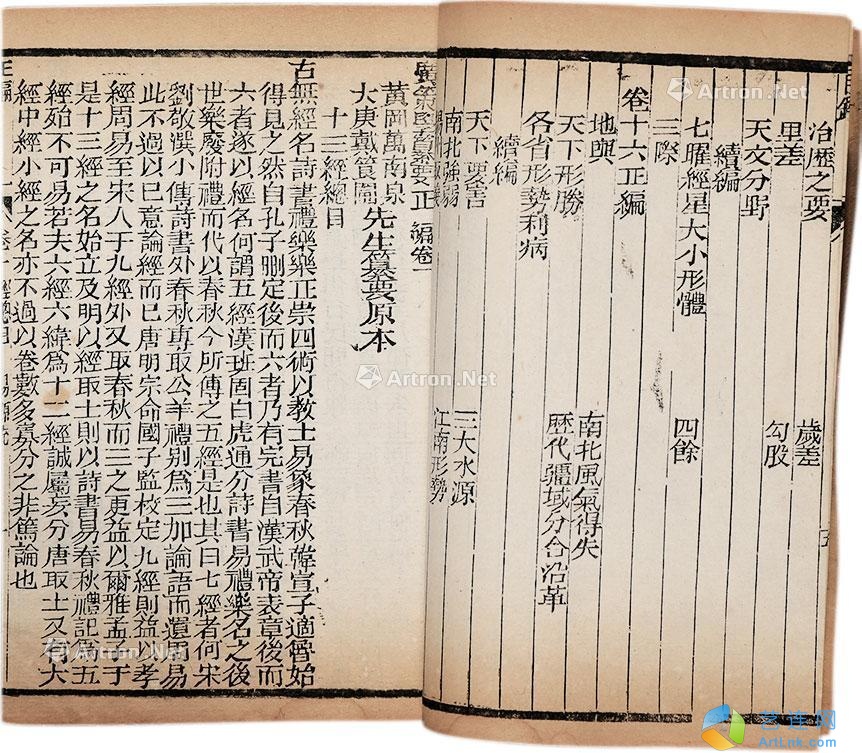 治歷之要
歲差
里差
勾股
天文分野
續編
七曜經星大小形體
四餘
三際
卷十六正編
地輿
天下形勝
南北風氣得失
各省形勢利病
歷代疆域分合沿革
續編
天下要害
三大水源
南北強弱
江南形勢
纂要正編卷一
黃岡萬南泉
大庚戴簣圃
先生纂要原本
十三經總目
古無經名詩書禮樂樂正崇四術以教士易象春秋韓宣子適魯始
得見之然自孔子刪定後而六者乃有完書自漢武帝表章後而
六者遂以經名何謂五經漢班固白虎通分詩書易禮樂名之後
世樂廢附禮而代以春秋今所傳之五經是也其曰七經者何宋
劉敞漢小傳詩書外春秋專取公羊禮別為三加論語而遺周易
此不過以已意論經而已唐明宗命國子監校定九經前益以孝
經周易至宋人于九經外又取春秋而三之更益以爾雅孟子于
是十三經之名始立及明以經取士則以詩書易春秋禮記為五
經始不可易若夫六經六緯為十二經誠屬亥分唐取士又有大
經中經小經之名亦不過以卷數多寡分之非篤論也
正編
卷一
經總目
Artron.Net
Artron.Net
Artron.Net
Artron.Net
Artron.Net
艺连网
ArtLnk.com